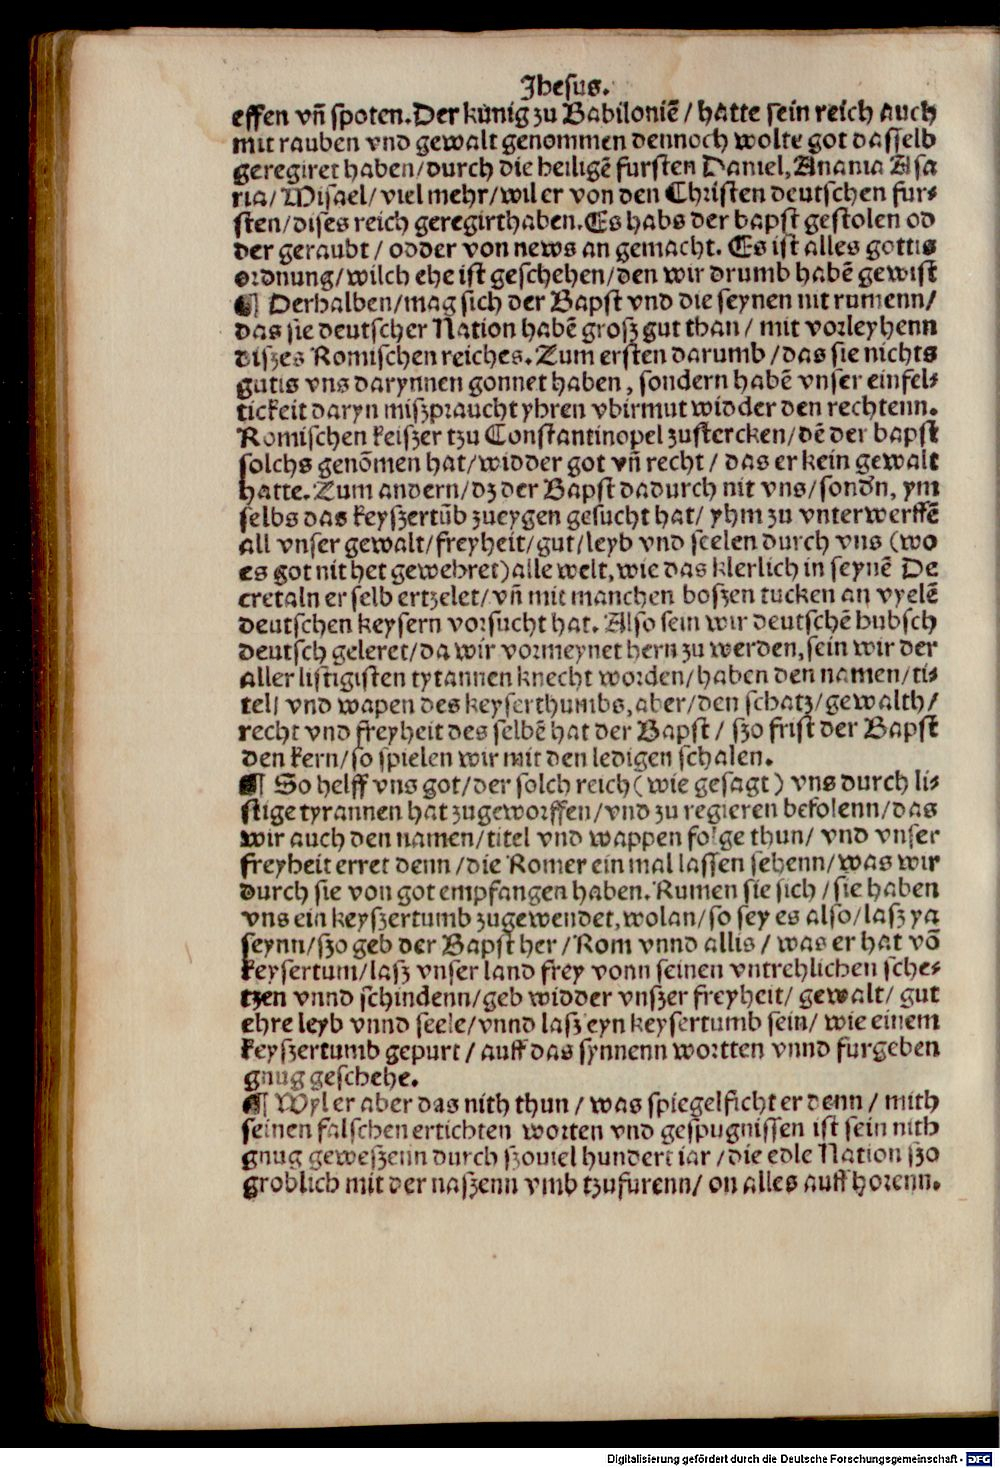 Jhesus.
effen vñ spoten. Der kůnig zu Babiloniẽ / hatte sein reich auch
mit rauben vnd gewalt genommen dennoch wolte got dasselb
geregiret haben / durch die heiligẽ fursten Daniel, Anania Asa
ria / Misael / viel mehr / wil er von den Christen deutschen fur⸗
sten / dises reich geregirthaben. Es habs der bapst gestolen od
der geraubt / odder von news an gemacht. Es ist alles gottis
ordnung / wilch ehe ist geschehen / den wir drumb habẽ gewist
¶ Derhalben / mag sich der Bapst vnd die seynen nit rumenn /
das sie deutscher Nation habẽ grosz gut than / mit vorleyhenn
diszes Romischen reiches. Zum ersten darumb / das sie nichts
gutis vns darynnen gonnet haben, sondern habẽ vnser einfel⸗
tickeit daryn miszpraucht yhren vbirmut widder den rechtenn.
Romischen keiszer tzu Constantinopel zustercken / dẽ der bapst
solchs genõmen hat / widder got vñ recht / das er kein gewalt
hatte. Zum andern / dz der Bapst dadurch nit vns / sondn, ym
selbs das keyszertũb zueygen gesucht hat / yhm zu vnterwerffẽ
all vnser gewalt / freyheit / gut / leyb vnd seelen durch vns (wo
es got nit het gewehret) alle welt, wie das klerlich in seynẽ De
cretaln er selb ertzelet / vñ mit manchen boszen tucken an vyelẽ
deutschen keysern vorsucht hat. Also sein wir deutschẽ hubsch
deutsch geleret / da wir vormeynet hern zu werden, sein wir der
aller listigisten tytannen knecht worden / haben den namen / ti⸗
tell vnd wapen des keyserthumbs, aber / den schatz / gewalth /
recht vnd freyheit des selbẽ hat der Bapst / szo frist der Bapst
den kern / so spielen wir mit den ledigen schalen.
¶ So helff vns got / der solch reich (wie gesagt) vns durch li⸗
stige tyrannen hat zugeworffen / vnd zu regieren befolenn / das
wir auch den namen / titel vnd wappen folge thun / vnd vnser
freyheit erret denn / die Romer ein mal lassen sehenn / was wir
durch sie von got empfangen haben. Rumen sie sich / sie haben
vns ein keyszertumb zugewendet, wolan / so sey es also / lasz ya
seynn / szo geb der Bapst her / Rom vnnd allis / was er hat võ
keysertum / lasz vnser land frey vonn seinen vntrehlichen sche⸗
tzen vnnd schindenn / geb widder vnszer freyheit / gewalt / gut
ehre leyb vnnd seele / vnnd lasz eyn keysertumb sein / wie einem
keyszertumb gepurt / auff das synnenn wortten vnnd furgeben
gnug geschehe.
¶ Wyl er aber das nith thun / was spiegelficht er denn / mith
seinen falschen ertichten worten vnd gespugnissen ist sein nith
gnug geweszenn durch szouiel hundert iar / die edle Nation szo
groblich mit der naszenn vmb tzufurenn / on alles auff horenn.
Digitalisierung gefördert durch die Deutsche Forschungsgemeinschaft - DFG